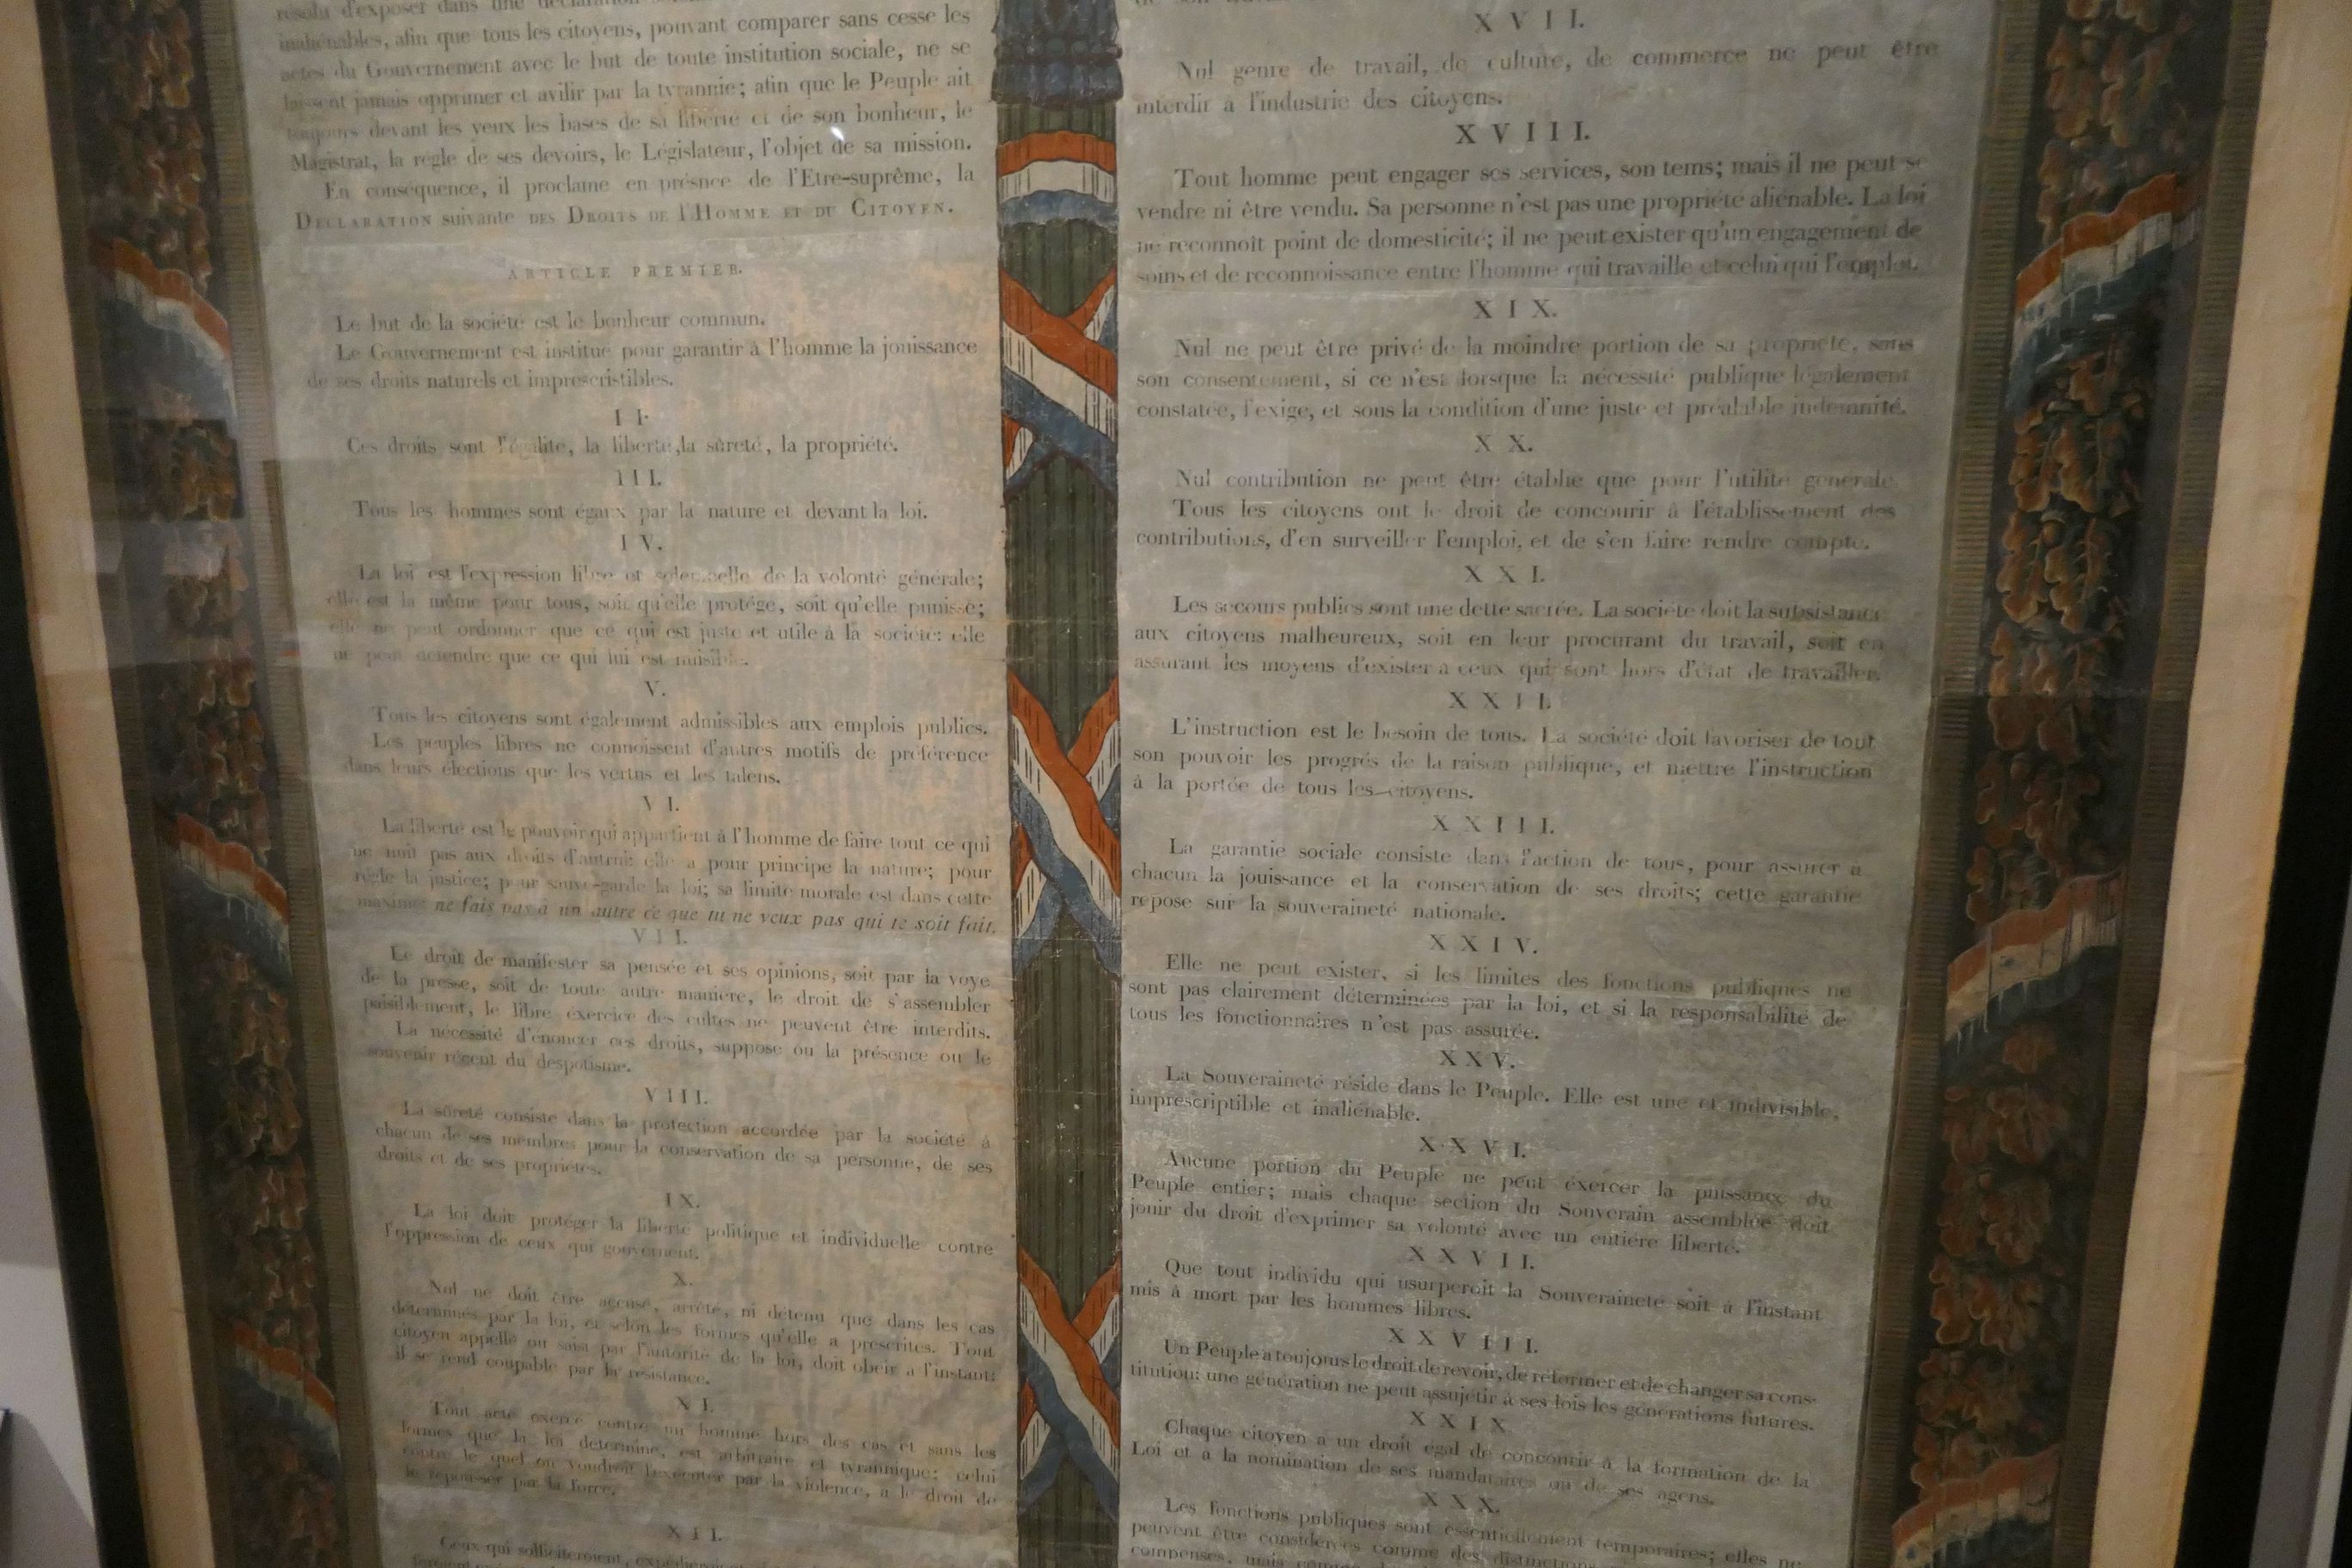 résolu d'exposer dans une
inaliénables, afin que tous les citoyens, pouvant comparer sans cesse les
actes du Gouvernement avec le but de toute institution sociale, ne se
laissent jamais opprimer et avilir par la tyrannie; afin que le Peuple ait
toujours devant les yeux les bases de sa liberté et de son bonheur, le
Magistrat, la régle de ses devoirs, le Législateur, l'objet de sa mission.
En conséquence, il proclame en présnce de l'Etre-suprême, la
DECLARATION suivante DES DROITS DE l'HOMME ET DU CITOYEN.
ARTICLE PREMIER.
Le but de la société est le bonheur commun.
Le Gouvernement est institué pour garantir à l'homme la jouissance
de ses droits naturels et imprescristibles.
II.
Ces droits sont l'égalité, la liberté, la sûreté, la propriété.
III.
Tous les hommes sont égaux par la nature et devant la loi.
IV.
La loi est l'expression libre et solemnelle de la volonté générale;
elle est la même pour tous, soit qu'elle protége, soit qu'elle punisse;
elle ne peut ordonner que ce qui est juste et utile à la société: elle
ne peut défendre que ce qui lui est nuisible.
V.
Tous les citoyens sont également admissibles aux emplois publics.
Les peuples libres ne connoissent d'autres motifs de préférence
dans leurs élections que les vertus et les talens.
VI.
La liberté est le pouvoir qui appartient à l'homme de faire tout ce qui
ne nuit pas aux droits d'autrui: elle a pour principe la nature; pour
régle la justice; pour sauve-garde la loi; sa limite morale est dans cette
maxime: ne fais pas à un autre ce que tu ne veux pas qui te soit fait.
VII.
Le droit de manifester sa pensée et ses opinions, soit par la voye
de la presse, soit de toute autre manière, le droit de s'assembler
paisiblement, le libre éxercice des cultes ne peuvent être interdits.
La nécessité d'énoncer ces droits, suppose ou la présence ou le
souvenir récent du despotisme.
VIII.
La sûreté consiste dans la protection accordée par la société à
chacun de ses membres pour la conservation de sa personne, de ses
droits et de ses propriétés.
IX.
La loi doit protéger la liberté politique et individuelle contre
l'oppression de ceux qui gouvernent.
X.
Nul ne doit être accusé, arrêté, ni détenu que dans les cas
déterminés par la loi, et selon les formes qu'elle a prescrites. Tout
citoyen appellé ou saisi par l'autorité de la loi, doit obéir à l'instant;
il se rend coupable par la résistance.
XI.
Tout acte exercé contre un homme hors des cas et sans les
formes que la loi détermine, est arbitraire et tyrannique: celui
contre le quel on voudroit l'exécuter par la violence, a le droit de
le repousser par la force.
XII.
Ceux qui solliciteroient,
XVII.
Nul genre de travail, de culture, de commerce ne peut être
interdit à l'industrie des citoyens.
XVIII.
Tout homme peut engager ses services, son tems; mais il ne peut se
vendre ni être vendu. Sa personne n'est pas une propriété aliénable. La loi
ne reconnoît point de domesticité; il ne peut exister qu'un engagement de
soins et de reconnoissance entre l'homme qui travaille et celui qui l'emploi.
XIX.
Nul ne peut être privé de la moindre portion de sa propriété, sans
son consentement, si ce n'est lorsque la nécessité publique légalement
constatée, l'exige, et sous la condition d'une juste et préalable indemnité.
XX.
Nul contribution ne peut être établie que pour l'utilité générale
Tous les citoyens ont le droit de concourir à l'établissement des
contributions, d'en surveiller l'emploi, et de s'en faire rendre compte.
XXI.
Les secours publics sont une dette sacrée. La société doit la subsistance
aux citoyens malheureux, soit en leur procurant du travail, soit en
assurant les moyens d'exister à ceux qui sont hors d'état de travailler.
XXII.
L'instruction est le besoin de tous. La société doit favoriser de tout
son pouvoir les progrés de la raison publique, et mettre l'instruction
à la portée de tous les citoyens.
XXIII.
La garantie sociale consiste dans l'action de tous, pour assurer à
chacun la jouissance et la conservation de ses droits; cette garantie
repose sur la souveraineté nationale.
XXIV.
Elle ne peut exister, si les limites des fonctions publiques ne
sont pas clairement déterminées par la loi, et si la responsabilité de
tous les fonctionnaires n'est pas assurée.
XXV.
La Souveraineté réside dans le Peuple. Elle est une et indivisible,
imprescriptible et inaliénable.
XXVI.
Aucune portion du Peuple ne peut éxercer la puissance du
Peuple entier; mais chaque section du Souverain assemblée doit
jouir du droit d'exprimer sa volonté avec un entiére liberté.
XXVII.
Que tout individu qui usurperoit la Souveraineté soit à l'instant
mis à mort par les hommes libres.
XXVIII.
Un Peuple a toujours le droit de revoir, de réformer et de changer sa cons-
titution: une génération ne peut assujétir à ses lois les générations futures.
XXIX
Chaque citoyen a un droit égal de concourir à la formation de la
Loi et à la nomination de ses mandataires ou de ses agens.
XXX.
Les fonctions publiques sont essentiellement temporaires; elles ne
peuvent être considérées comme des distinctions
compenses, mais comme